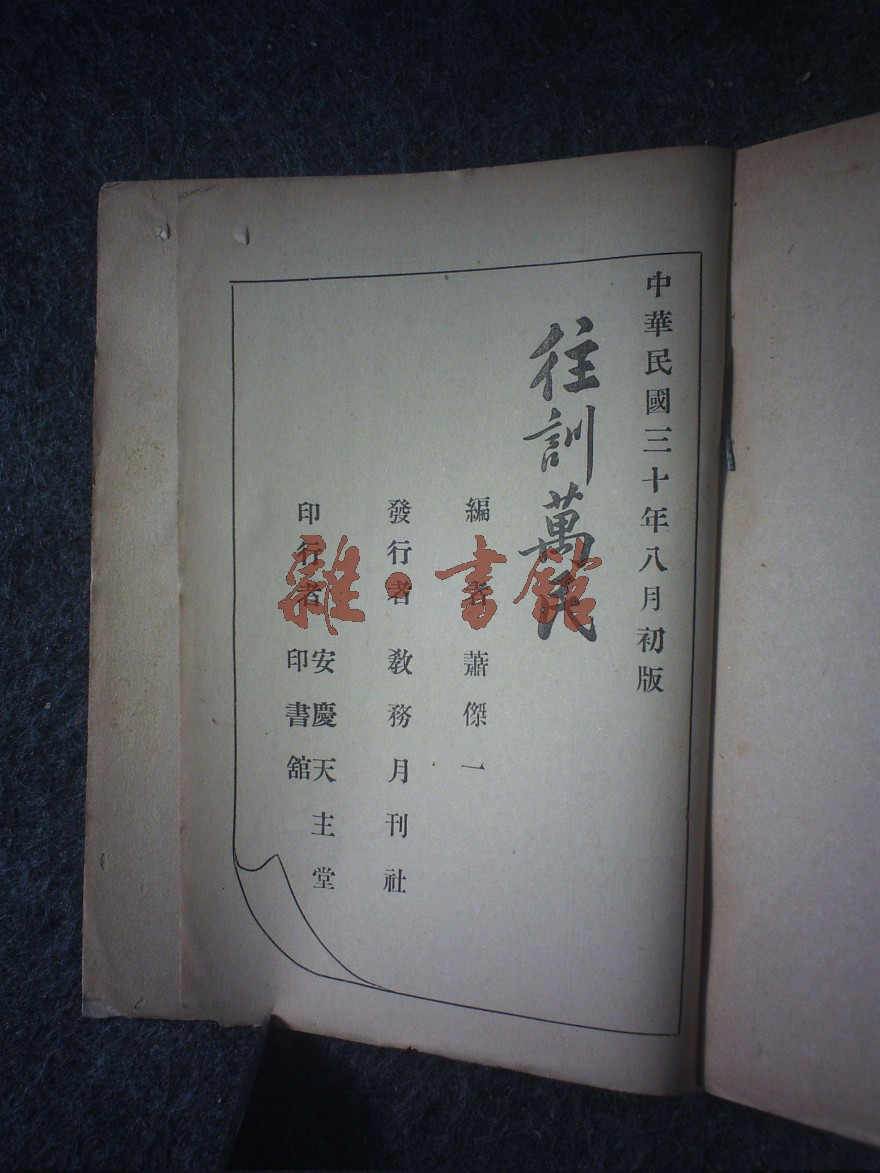 中華民國三十年八月初版
往訓萬民
編者 蕭傑一
發行者 敎務月刊社
印行者 安慶天主堂
印書舘
雜·書館